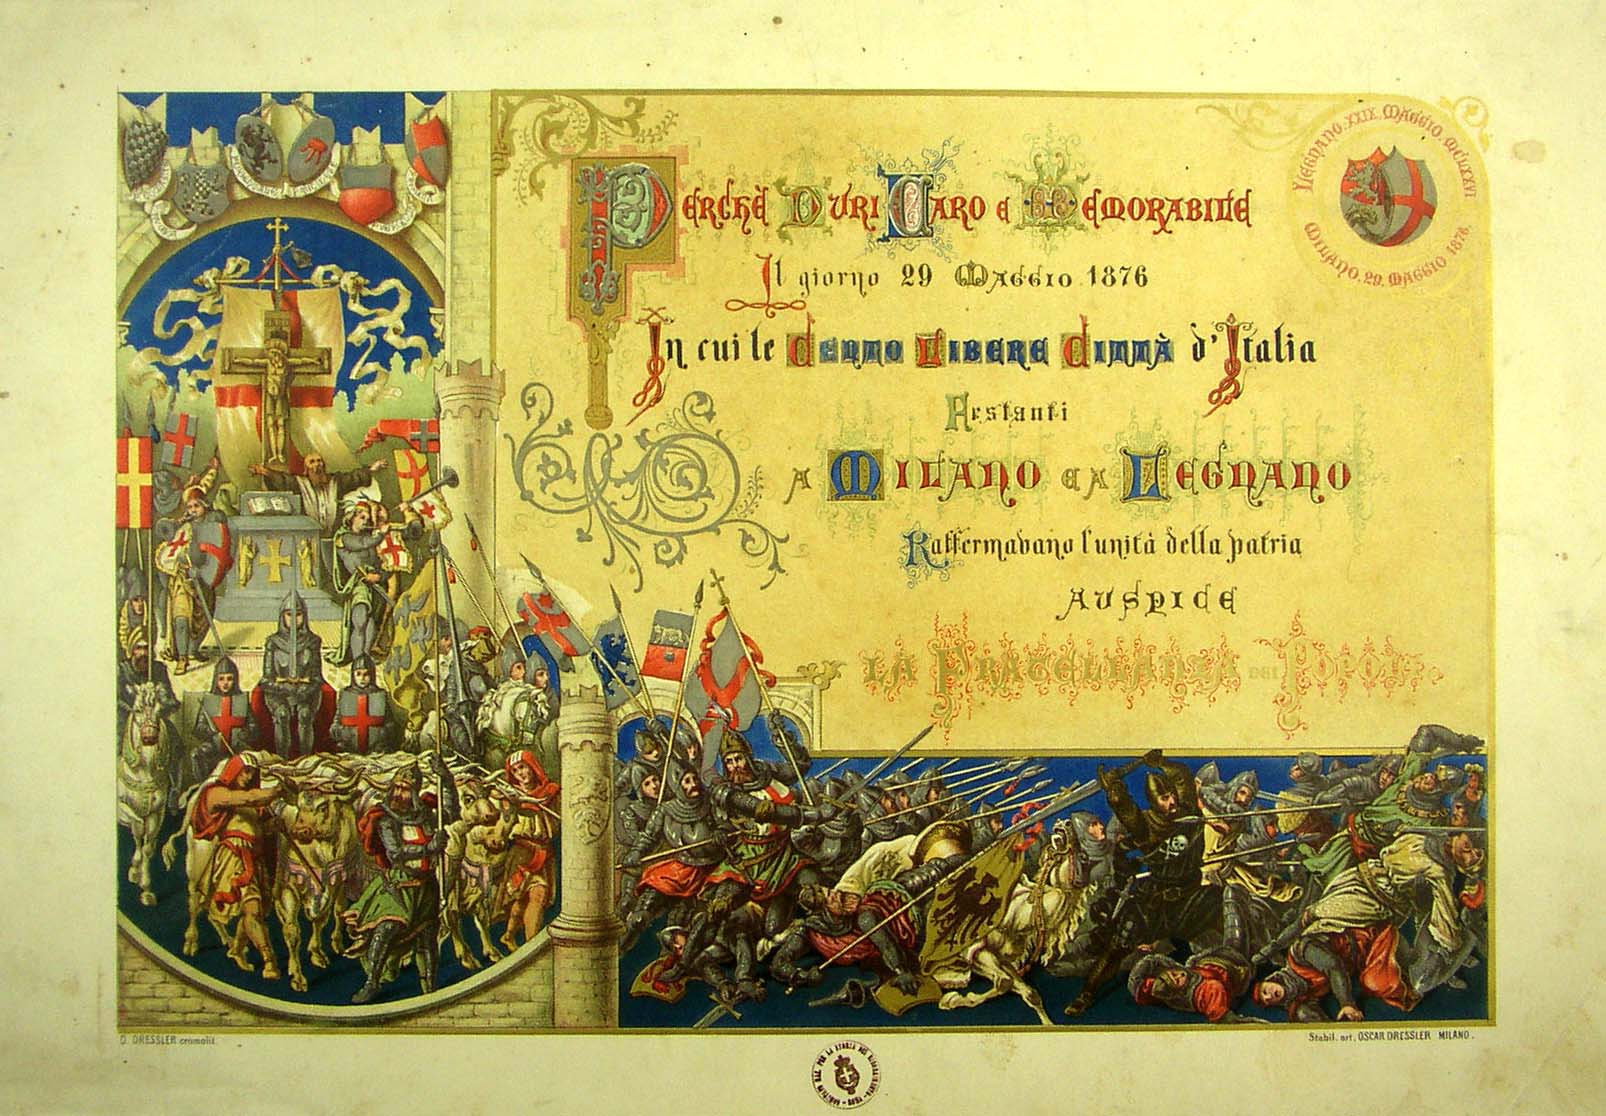 Perchè Duri Caro e Memorabile
Il giorno 29 Maggio 1876
In cui le Cento Libere Città d'Italia
Festanti
A Milano e a Legnano
Raffermavano l'unità della patria
AUSPICE
La Fratellanza dei Popoli.
LEGNANO. XXIX. MAGGIO. MCLXXVI
MILANO. 29. MAGGIO 1876.
O. DRESSLER cromolit.
Stabil. art. OSCAR DRESSLER MILANO.